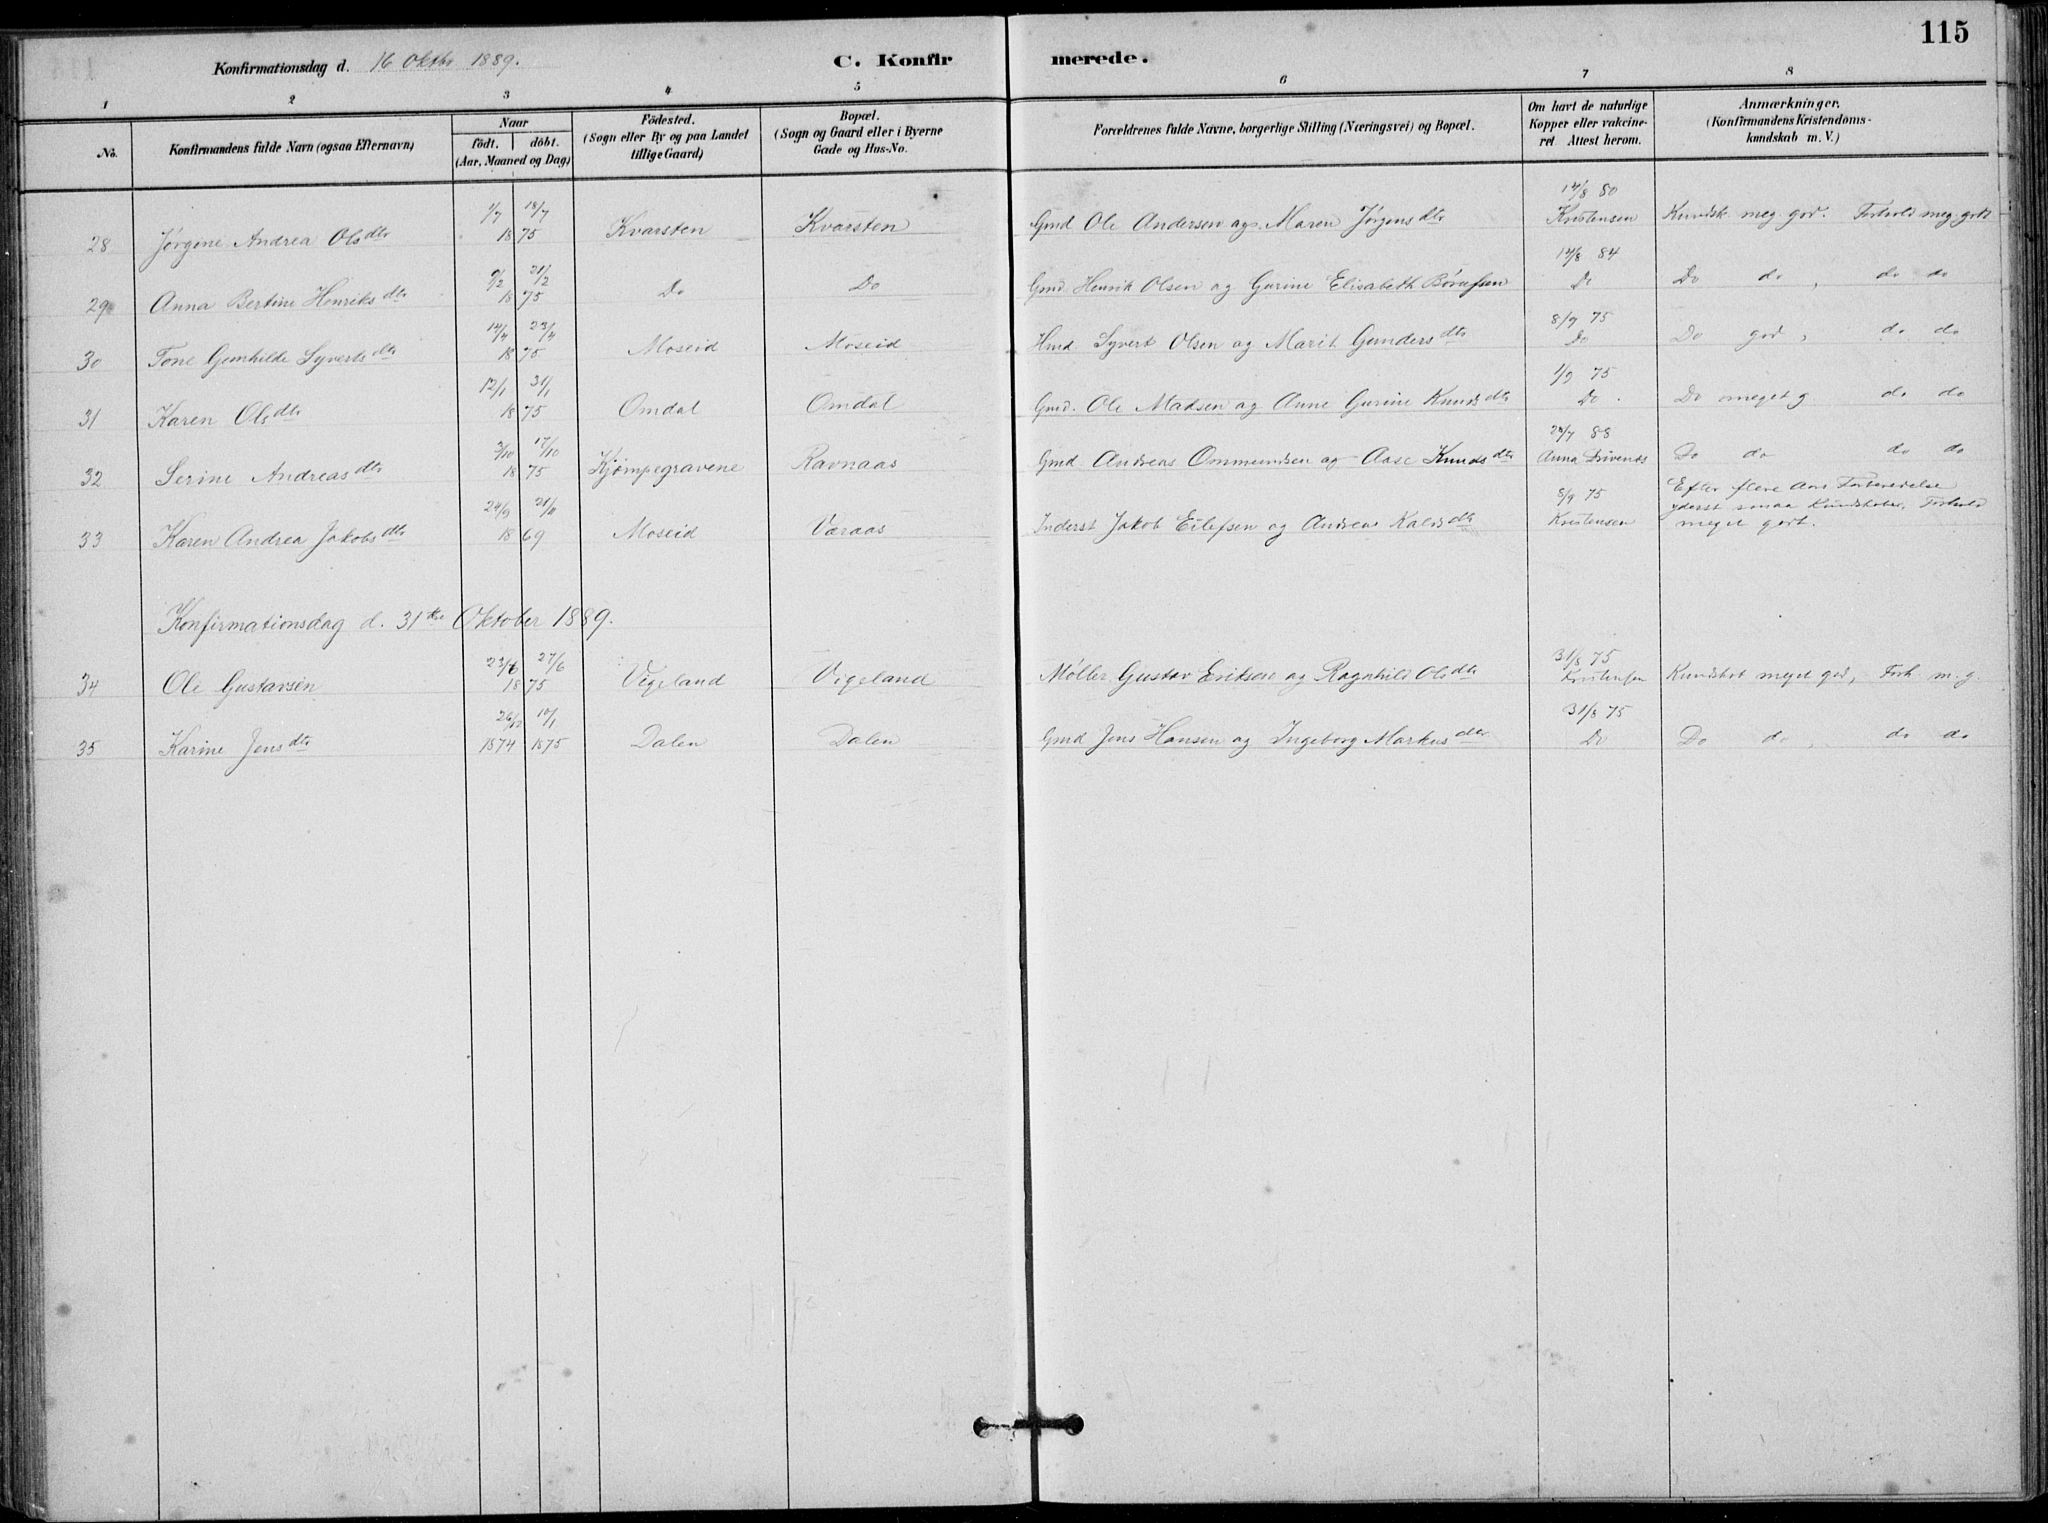 115
Konfirmationsdag d. 16 Oktbr 1889. C. Konfir merede.
1 2 3 4 5 6 7 8
No. Konfirmandens fulde Navn (ogsaa Efternavn) Naar födt. döbt. (Aar, Maaned og Dag) Födested. (Sogn eller By og paa Landet tillige Gaard) Bopæl. (Sogn og Gaard eller i Byerne Gade og Hus-No. Forældrenes fulde Navne, borgerlige Stilling (Næringsvei) og Bopæl. Om havt de naturlige Kopper eller vakcineret Attest herom. Anmærkninger, (Konfirmandens Kristendomskundskab m. V.)
28 Jørgine Andrea Olsdtr 1/7 18/7 1875 Kvarsten Kvarsten Gmd Ole Andersen og Maren Jørgensdtr 14/8 80 Kristensen Kundsk. meg. god. Forhold meg. godt
29 Anna Bertine Henriksdtr 9/2 21/2 1875 Do Do Gmd Henrik Olsen og Gurine Elisabeth 14/8 84 Do Do do, do do
30 Tone Gunhilde Syvertsdtr 14/4 23/4 1875 Moseid Moseid Hmd Syvert Olsen og Marit Gundersdtr 8/9 75 Do Do god, do do
31 Karen Olsdtr 12/1 31/1 1875 Omdal Omdal Gmd. Ole Madsen og Anne Gurine Knudsdtr 1/9 75 Do. Do meget g do do
32 Serine Andreasdtr 3/10 17/10 1875 Kjømpegravene Ravnaas Gmd Andreas Ommundsen og Aase Knudsdtr 24/7 88 Anna Do do do do
33 Karen Andrea Jakobsdtr 24/9 21/11 1869 Moseid Varaas Inderst Jakob Eilefsen og Andrea 8/9 75 Kristensen Efter flere Aars Forberedelse yderst smaa Kundskaber, Forhold meget godt.
Konfirmationsdag d. 31te Oktober 1889.
34 Ole Gustavsen 23/6 27/6 1875 Vigeland Vigeland Møller Gustav Eriksen og Ragnhild Olsdtr 31/8 75 Kristensen Kundskab meget god, Forh. m. g.
35 Karine Jensdtr 26/12 10/1 1874 1875 Dalen Dalen Gmd Jens Hansen og Ingeborg Markusdtr 31/8 75 Do Do do, do do